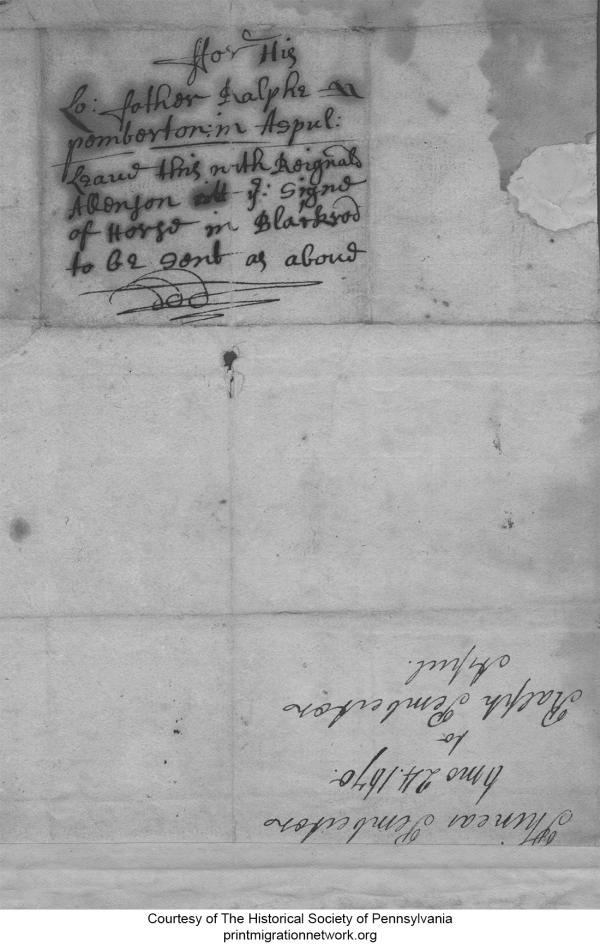 ffor His
Lo: ffather Ralphe
pemberton: in Aspul:
Leave this with Reignald
Allenson att ye: Signe
of Horse in Blackrod
to be sent as above
Phineas Pemberton
6mo 24. 1670.
to
Ralph Pemberton
Aspul.
Courtesy of The Historical Society of Pennsylvania
printmigrationnetwork.org